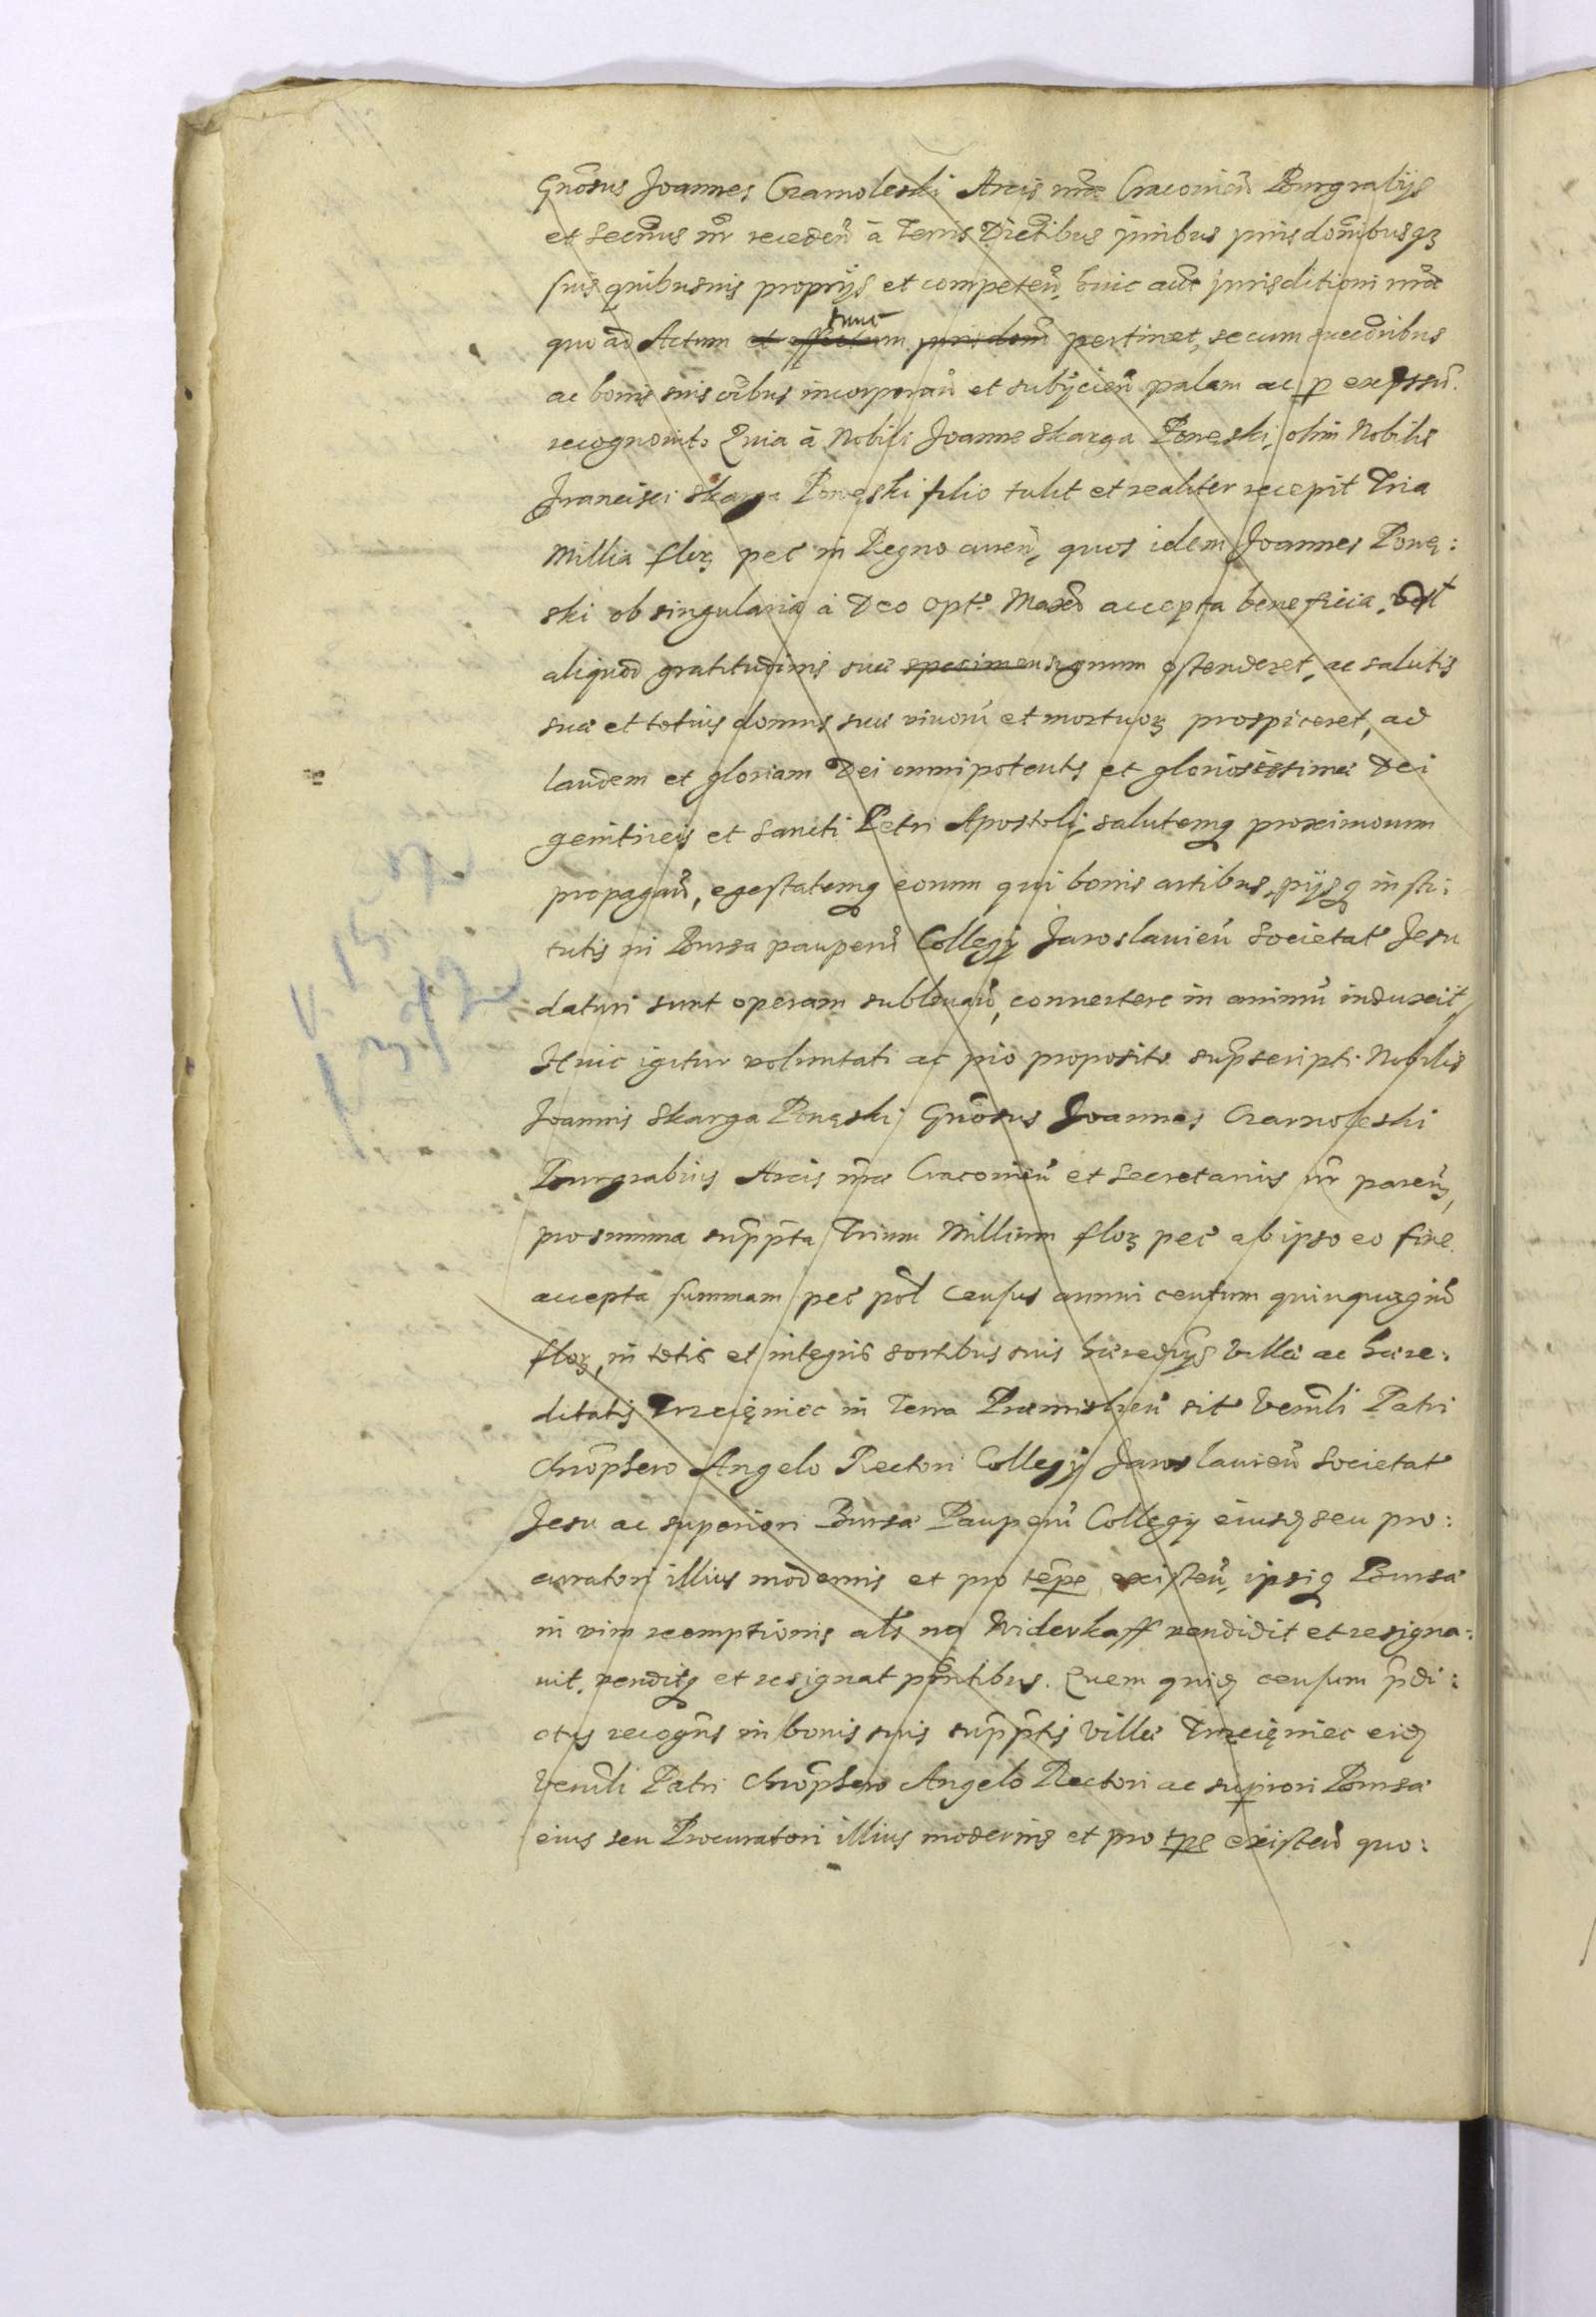 Gnosus Joannes Czarnoleski Arcis nrae Cracouien Burgrabius
et Secrius nr receden a Terris Districtibus juribus jurisdonibusq3
suis quibusuis proprijs et competen, huic aute jurisditioni nrae
quoad Actum et effectum jurisdom hunc pertinet, se cum succoribus
ac bonis suis oibus incorporan et subijcien palam ac p expssu
recognouit. Quia a Nobili Joanne Skarga Powęski, olim Nobilis
Francisci Skarga Powęski filio tulit et realiter recepit Tria
Millia flor pec in Regno curen, quos idem Joannes Powę:
ski ob singularia a Deo Opt. Maxo accepta beneficia, vt
aliquod gratitudinis suae specimen signum ostenderet, ac salutis
suae et totius domus suae viuoru et mortuor prospiceret, ad
laudem et gloriam Dei omnipotentis et gloriosissimae Dei
genitricis et Sancti Petri Apostoli, salutemq proximorum
propagan, egestatemq eorum qui bonis artibus pijsq insti:
tutis in Bursa pauperu Collegij Jaroslauien Societat Jesu
daturi sunt operam subleuan, conuertere in animu induxit,
Huic igitur voluntati ac pio proposito suprascripti Nobilis
Joannis Skarga Powęski Gnosus Joannes Czarnoleski
Burgrabius Arcis nrae Cracouien et Secretarius nr paren,
pro summa suppta Trium Millium flor pec ab ipso eo fine
accepta summam pec pol census annui centum quinquagin
flor, in totis et integris sortibus suis haeredijs villae ac haere:
ditatis Trzcięniec in Terra Praemislien sit Venrli Patri
Chrophero Angelo Rectori Collegij Jaroslauien Societat
Jesu ac superiori Bursae Pauperu Collegij eiusq seu pro:
curatori illius modernis et pro tepe existen, ipsiq Bursae
in vim reemptionis als na Widerkaff vendidit et resigna:
uit, venditq et resignat pntibus. Quem quiq censum pdi:
ctus recogns in bonis suis supptis villae Trzcięniec eiq
Venrli Patri Chrophero Angelo Rectori ac supiori Bursae
eius seu Procuratori illius modernis et pro tpe existen quo: